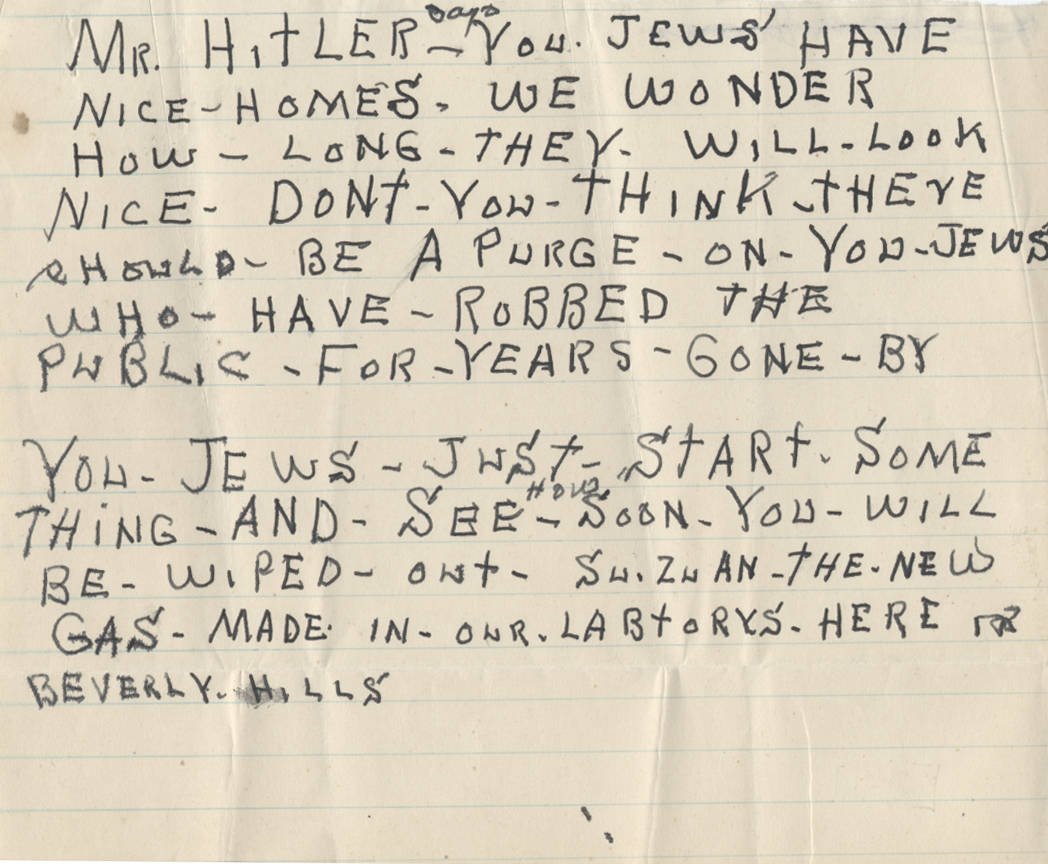 says
MR. HITLER - YOU. JEWS' HAVE
NICE - HOMES. WE WONDER
HOW - LONG - THEY. WILL - LOOK
NICE - DONT - YOU - THINK - THERE
SHOULD - BE A PURGE - ON - YOU - JEWS
WHO - HAVE - ROBBED THE
PUBLIC - FOR - YEARS - GONE - BY
YOU - JEWS - JUST - START. SOME
HOW
THING - AND - SEE - SOON - YOU - WILL
BE - WIPED - OUT - SU.ZUAN - THE. NEW
GAS - MADE. IN - OUR. LABTORYS. HERE
BEVERLY. HILLS